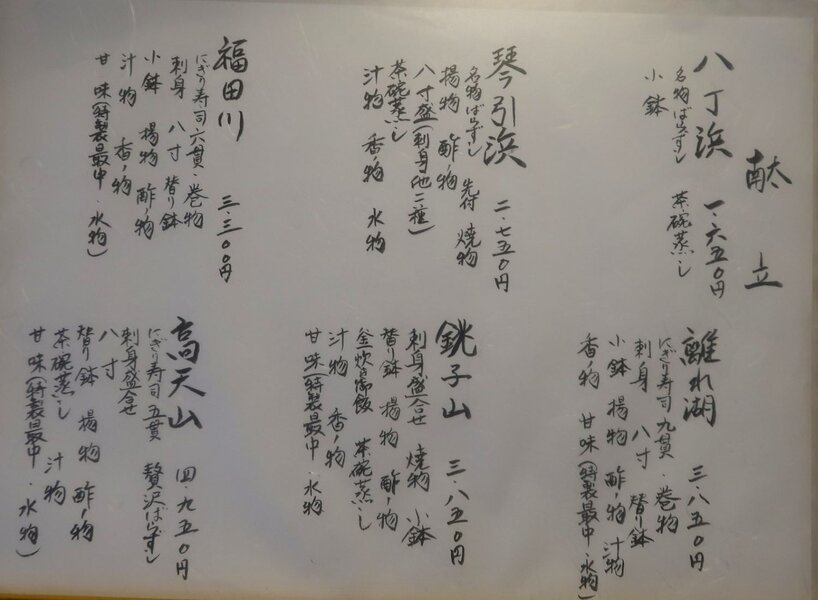 献立
八丁浜 一・六五〇円
名物ばらずし 茶碗蒸し
小鉢
琴引浜 二・七五〇円
名物ばらずし 先付 焼物
揚物 酢の物
八寸盛(刺身他二種)
茶碗蒸し
汁物 香の物 水物
福田川 三・三〇〇円
にぎり寿司六貫・巻物
刺身 八寸 替り鉢
小鉢 揚物 酢の物
汁物 香の物
甘味(特製最中・水物)
離れ湖 三・八五〇円
にぎり寿司九貫・巻物
刺身 八寸 替り鉢
小鉢 揚物 酢の物 汁物
香の物 甘味(特製最中・水物)
銚子山 三・八五〇円
刺身盛合せ 焼物 小鉢
替り鉢 揚物 酢の物
釜炊き御飯 茶碗蒸し
汁物 香の物
甘味(特製最中・水物
高天山 四・九五〇円
にぎり寿司五貫 贅沢ばらずし
刺身盛合せ
八寸
替り鉢 揚物 酢の物
茶碗蒸し 汁物
甘味(特製最中・水物)